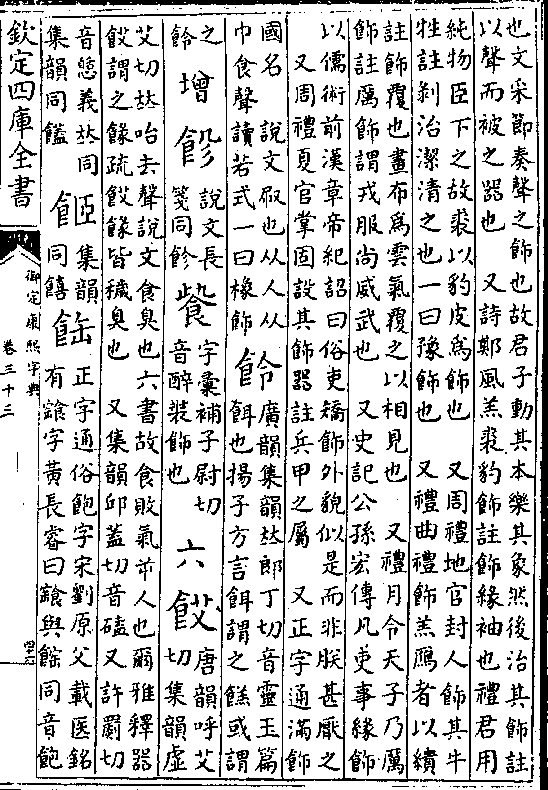 也文采節奏聲之飾也故君子動其本樂其象然後治其飾註
以聲而被之器也 又詩鄭風羔裘豹飾註飾緣袖也禮君用
純物臣下之故裘以豹皮爲飾也 又周禮地官封人飾其牛
牲註剝治潔清之也一曰豫飾也 又禮曲禮飾羔鴈者以繢
註飾覆也畫布爲雲氣覆之以相見也 又禮月令天子乃厲
飾註厲飾謂戎服尚威武也 又史記公孫宏傳凡吏事緣飾
以儒術前漢章帝紀詔曰俗吏矯飾外貌似是而非朕甚厭之
又周禮夏官掌固設其飾器註兵甲之屬 又正字通滿飾
國名 說文㕞也从人从
巾食聲讀若式一曰橡飾
䬋
廣韻集韻𠀤郎丁切音靈玉篇
餌也揚子方言餌謂之餻或謂
之
䬋
增
說文長
箋同飻
字彙補子尉切
音醉裝飾也
六
餀
唐韻呼艾
切集韻虛
艾切𠀤咍去聲說文食臭也六書故食敗氣帀人也爾雅釋器
餀謂之餯疏餀餯皆穢臭也 又集韻邱蓋切音磕又許罽切
音憩義𠀤同
集韻同饁
集韻
同饎
正字通俗飽字宋劉原父載医銘
有字黃長睿曰與同音飽
欽定四庫全書
御定康熙字典
卷三十三